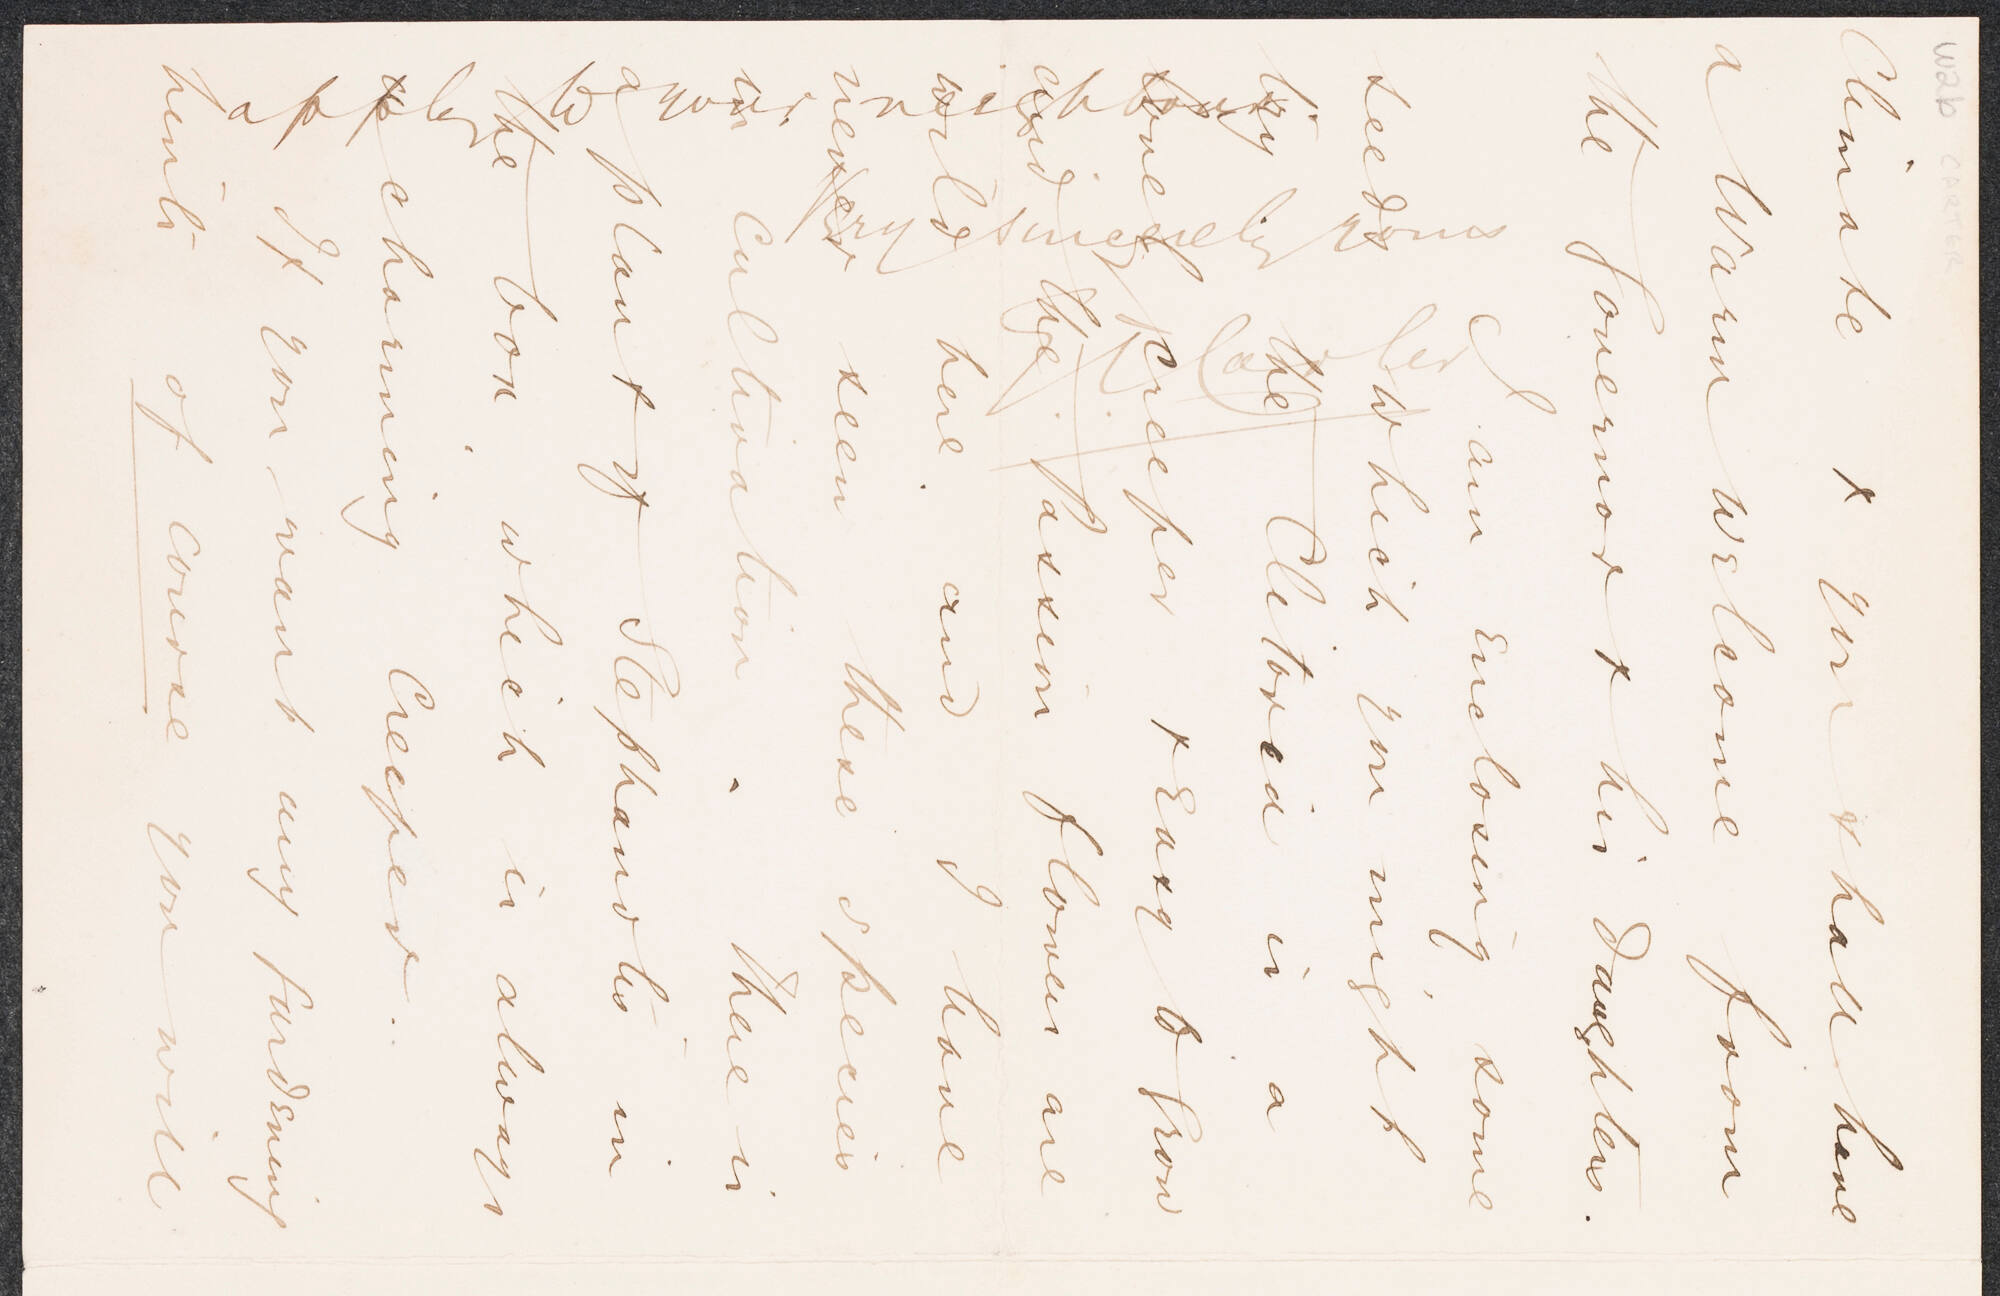 Climate & you shall have
a Warm welcome from
the Governor & his daughters.
I am enclosing some
seeds which you might
try the Clitoria is a
fine creeper & easy to grow
and the passion flower are
wild here and I have
never seen these species
in cultivation. There is
a plant of Stephanotis in
the box which is always
a charming Creeper.
If you want any gardening
hints of course you will
apply to your neighbour.
Very sincerely yours
G. Carter
W2b CARTER